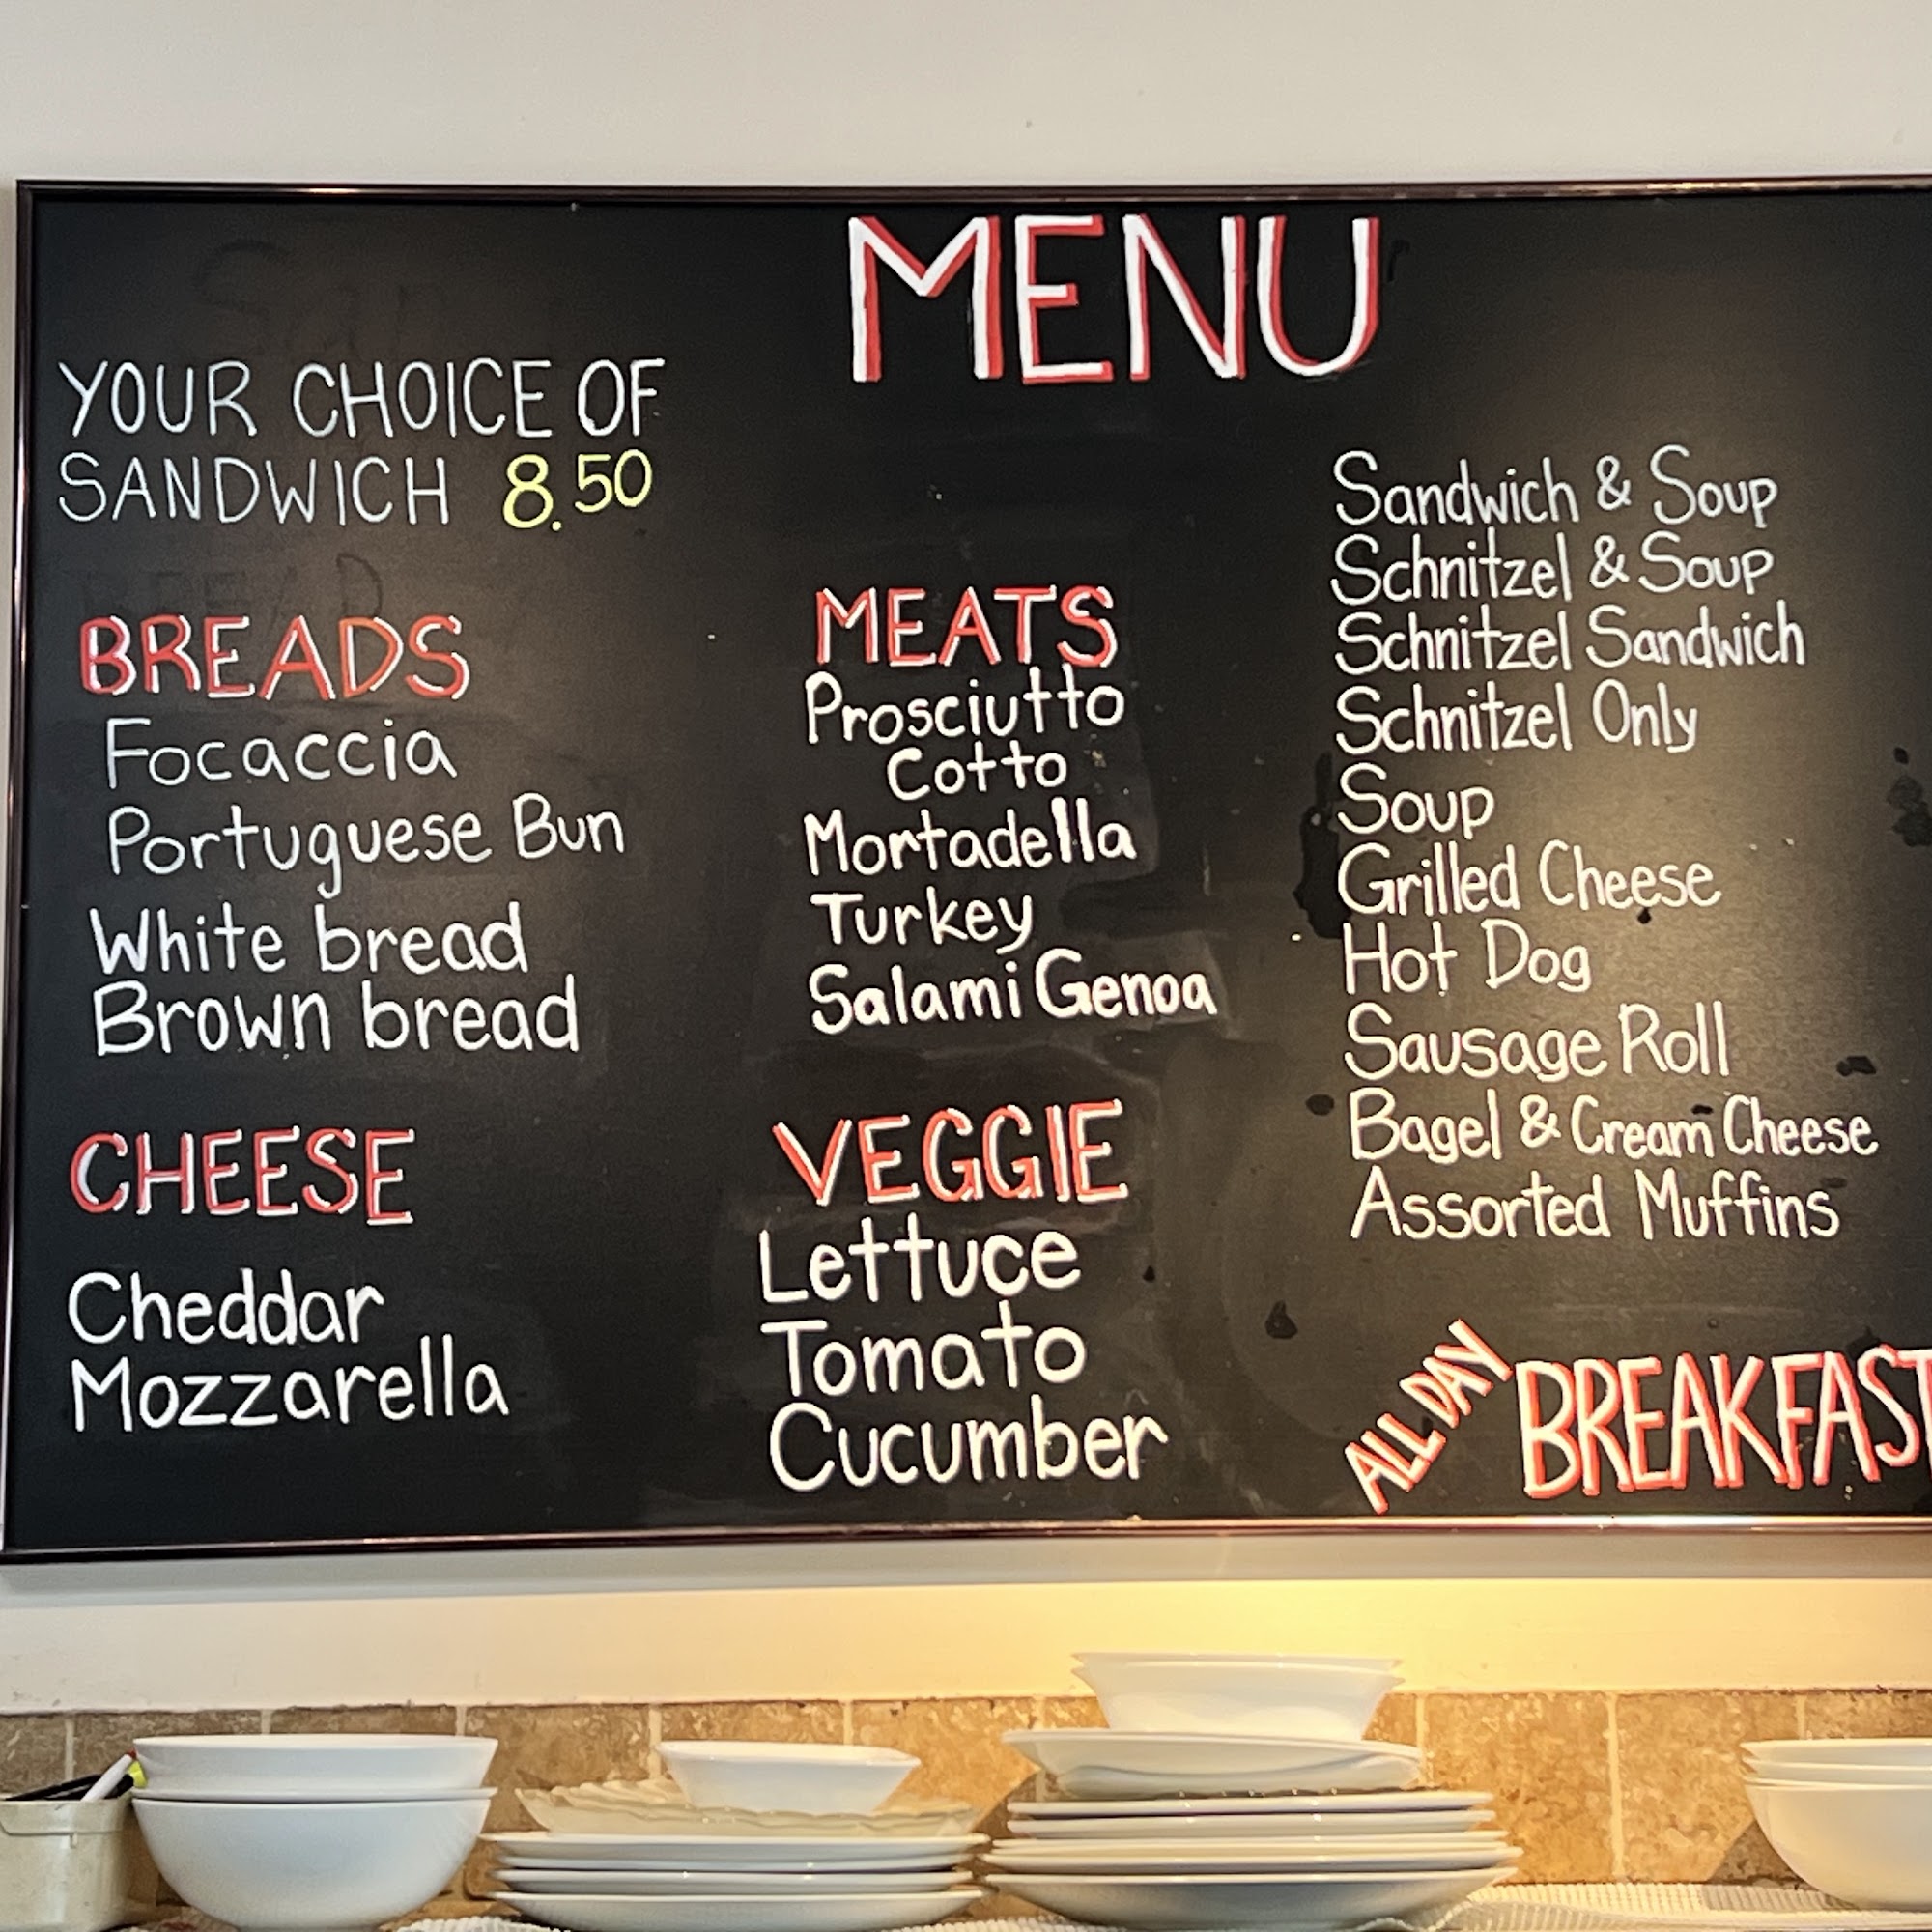 MENU
YOUR CHOICE OF
SANDWICH 8.50
BREADS
Focaccia
Portuguese Bun
White bread
Brown bread
CHEESE
Cheddar
Mozzarella
MEATS
Prosciutto
Cotto
Mortadella
Turkey
Salami Genoa
VEGGIE
Lettuce
Tomato
Cucumber
Sandwich & Soup
Schnitzel & Soup
Schnitzel Sandwich
Schnitzel Only
Soup
Grilled Cheese
Hot Dog
Sausage Roll
Bagel & Cream Cheese
Assorted Muffins
ALL DAY BREAKFAST